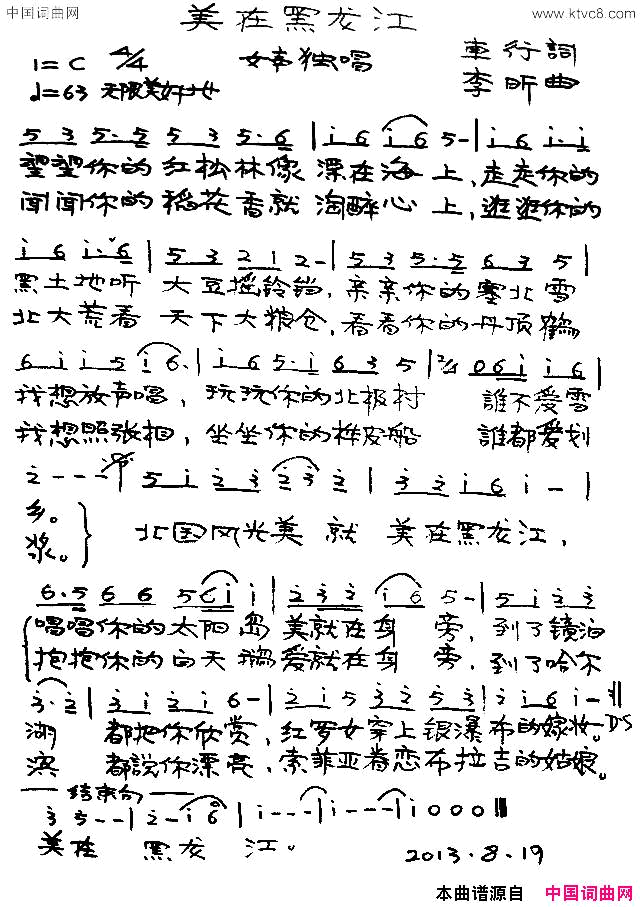 中国词曲网
www.ktvc8.com
美在黑龙江
1=C 4/4 女声独唱 車行詞
♩=63 无限美好地 李昕曲
5 3 5·5 5 3 5·6 | i 6 i 6 5- | i 6 i·i
望望你的红松林像漂在海上,走走你的
闻闻你的稻花香就淘醉心上,逛逛你的
i 6 i·6 | 5 3 2 1 2- | 5 3 5·5 6 3 5 |
黑土地听大豆摇铃铛,亲亲你的塞北雪
北大荒看天下大粮仓,看看你的丹顶鹤
6 i i 5 i 6· | i 6 5·i 6 3 5 | 2/4 0 6 i i 6 |
我想放声唱,玩玩你的北极村 誰不爱雪
我想照张相,坐坐你的桦皮船 誰都爱划
2 - - - | 5 i 2 3 2 3 2 | 3 2 i 6 i - |
乡。 北国风光美就美在黑龙江,
浆。
6·5 6 6 5 6 i i | 2 3 2 i 6 5- | 5 i 3 3
唱唱你的太阳岛美就在身旁,到了镜泊
抱抱你的白天鵝爱就在身旁,到了哈尔
3·2 | 3 i 2 i 6- | 2 i 5 3 2 5 3 | 2 i 6 i- :|| DS
湖 都把你欣赏,红罗女穿上银瀑布的嫁妆。
滨 都説你漂亮,索菲亚眷恋布拉吉的姑娘。
结束句
3 5 - - | 2 - i 6 | i - - - | i - - - | i 0 0 0 ||
美在黑龙江。
2013.8.19
本曲谱源自 中国词曲网